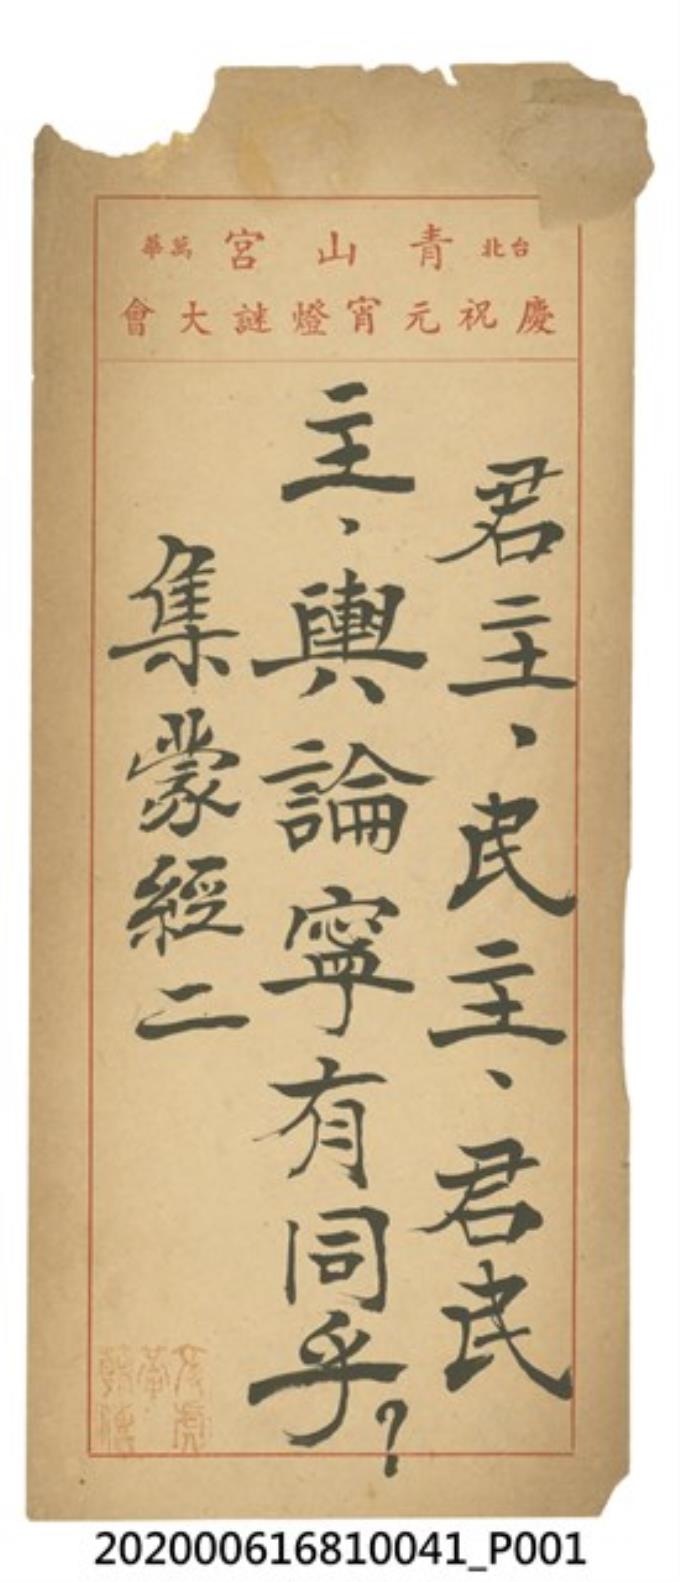 台北 青山宮 萬華
慶祝元宵燈謎大會
君主、民主、君民
主、輿論寧有同乎?
集蒙經二
202000616810041_P001